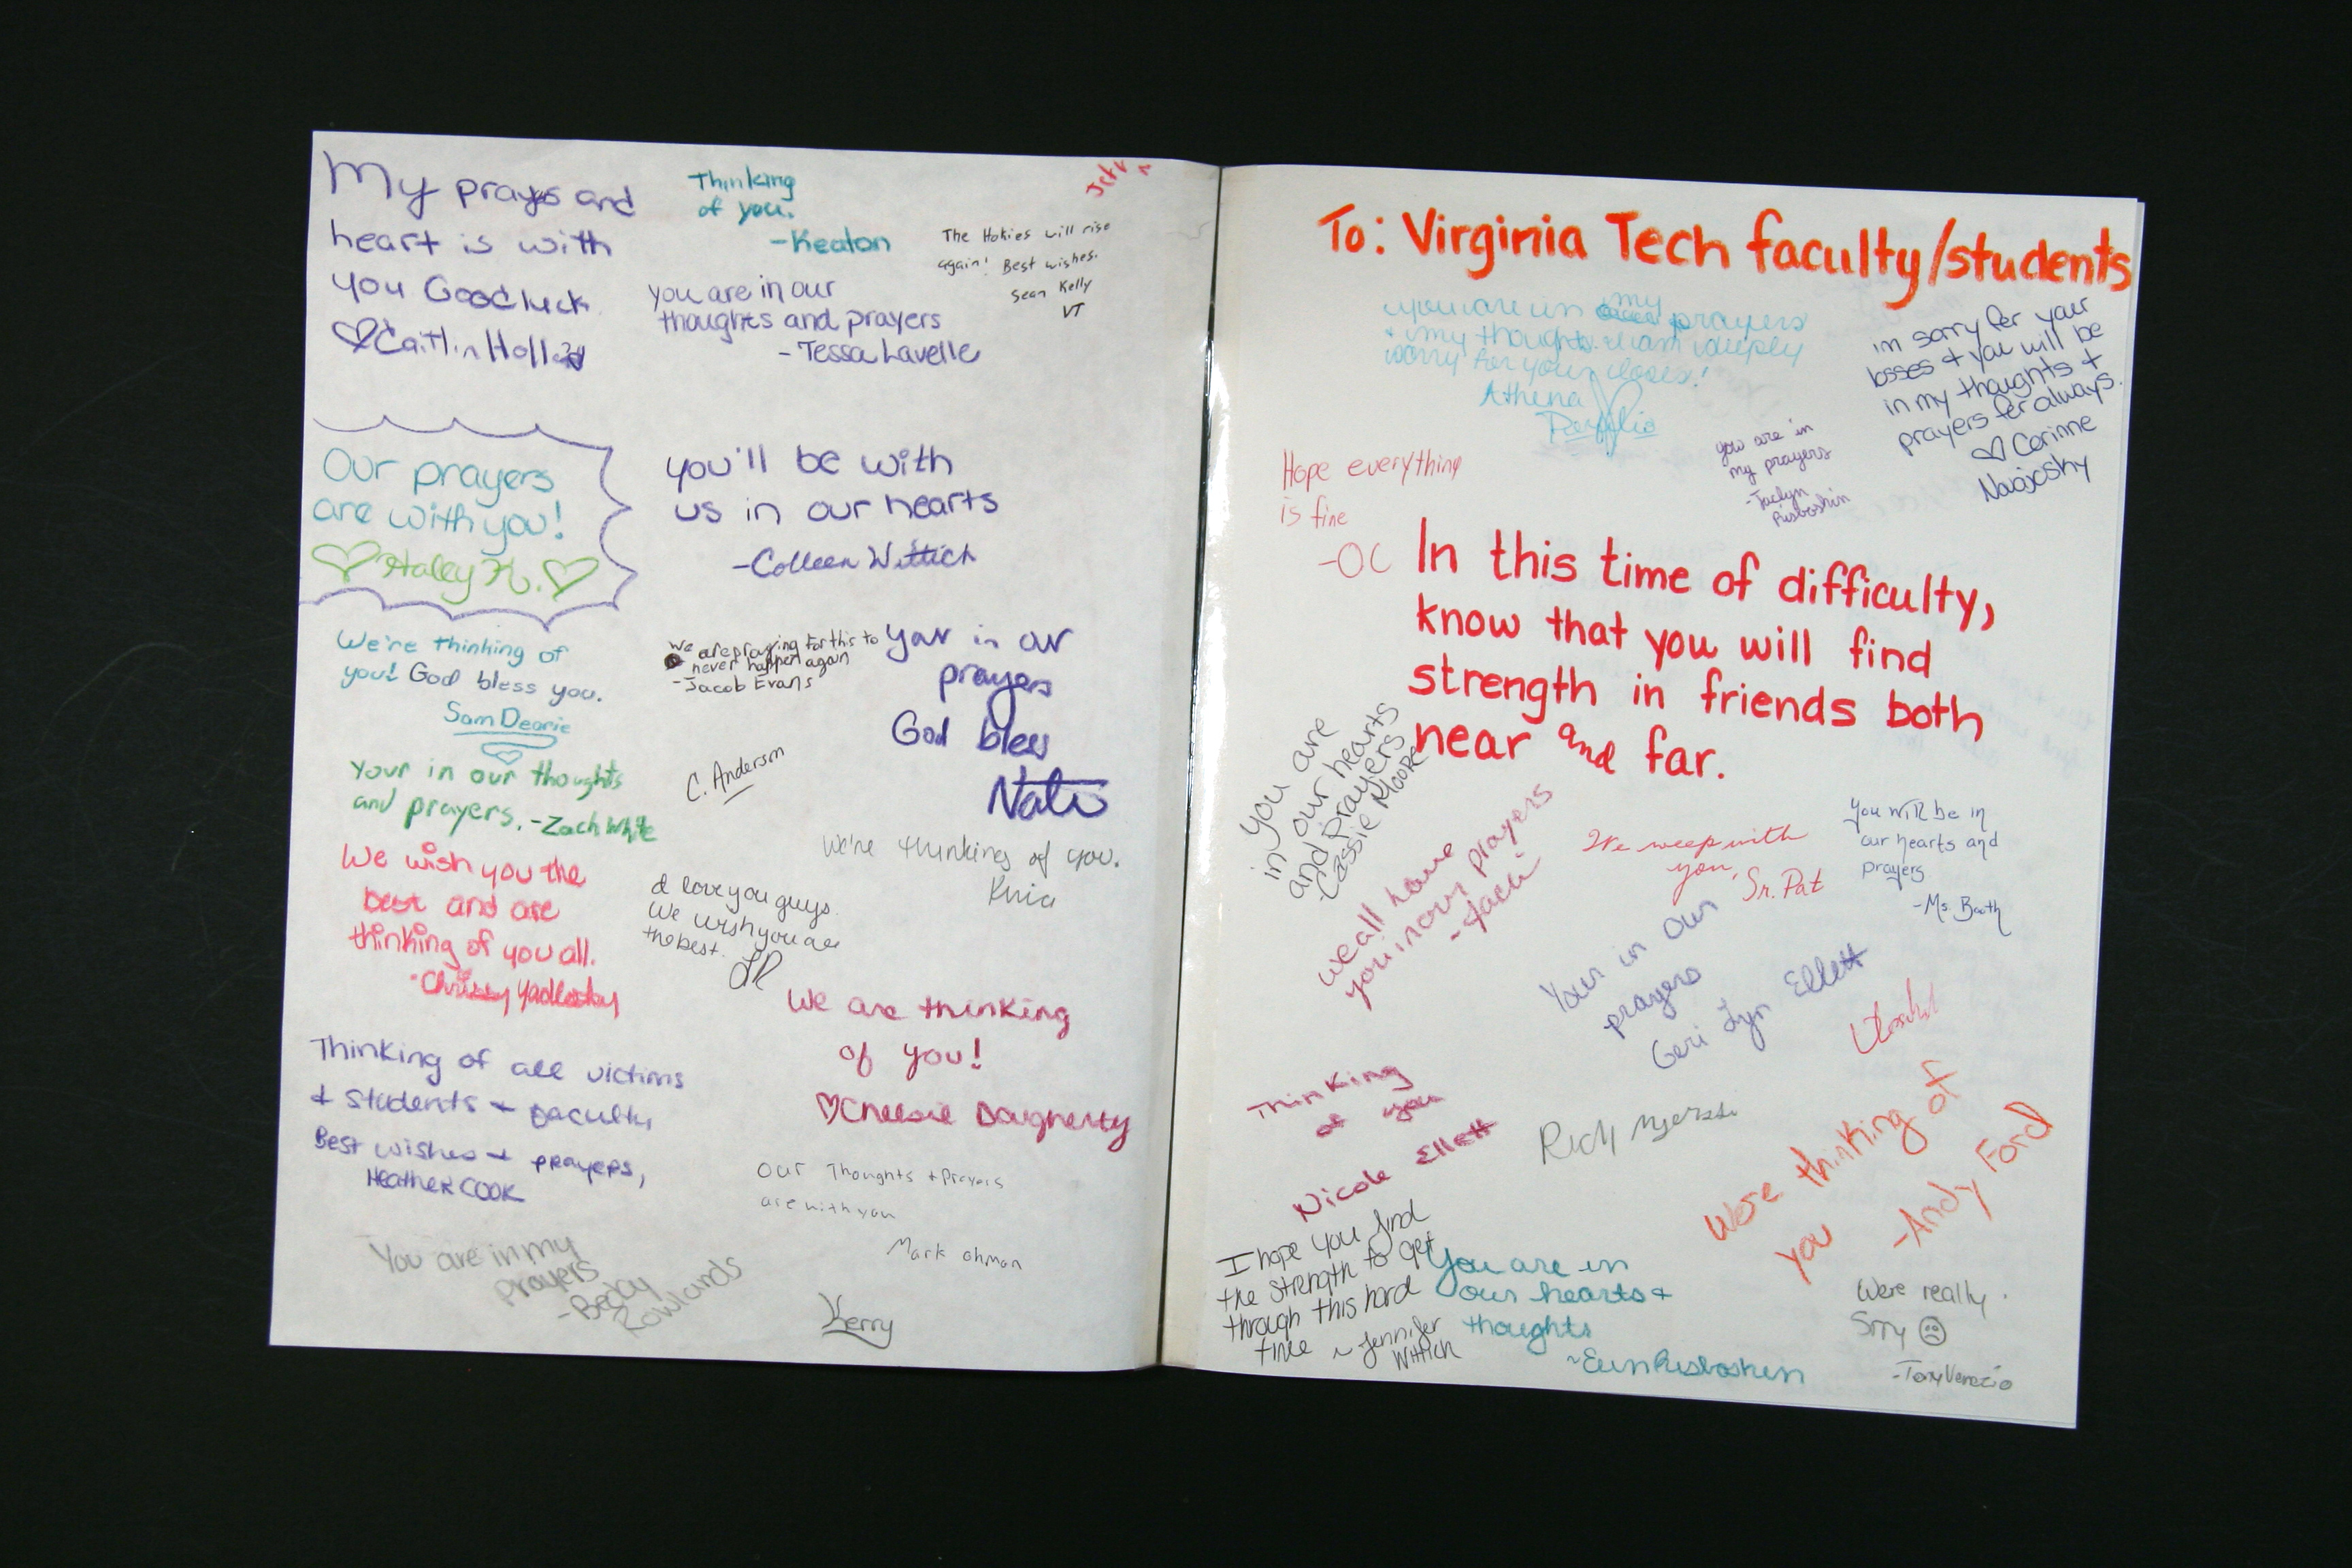 My prays and
heart is with
you Good luck
Caitlin Holland
Thinking
of you.
-Keaton
The Hokies will rise
again! Best wishes.
Sean Kelly
VT
you are in our
thoughts and prayers
-Tessa Lavelle
Our prayers
are with you!
Haley H.
you'll be with
us in our hearts
-Colleen Wittich
We're thinking of
you! God bless you.
Sam Dearie
we are praying for this to
never happen again
-Jacob Evans
your in our
prayers
God bless
C. Anderson
Your in our thoughts
and prayers. -Zach White
We're thinking of you.
We wish you the
best and are
thinking of you all.
-Chrissy Yadlosky
I love you guys.
We wish you all
the best.
JR
We are thinking
of you!
Chelsie Daugherty
Thinking of all victims
+ students + faculty
Best wishes + prayers,
Heather Cook
Our Thoughts + Prayers
are with you
Mark Ohman
You are in my
prayers
-Becky
Rowlands
Kerry
To: Virginia Tech faculty/students
you are in my prayers
+ my thoughts. I am deeply
sorry for your loses!
Athena
im sorry for your
losses + you will be
in my thoughts +
prayers for always.
Corinne
Navajosky
you are in
my prayers
-Jaclyn
Pusboshin
Hope everything
is fine
-OC
In this time of difficulty,
know that you will find
strength in friends both
near and far.
in you are
our hearts
and prayers
-Cassie Moore
we all have
you in our prayers
-Jaci
We weep with
you, Sr. Pat
You will be in
our hearts and
prayers
-Ms. Booth
Your in our
prayers
Geri Lyn Ellett
Thinking
of you
Nicole Ellett
Rich
We're thinking of
you
-Andy Ford
I hope you find
the strength to get
through this hard
time ~ Jennifer
Wittich
You are in
our hearts +
thoughts
~Erin Pusboshin
We're really
Srry
-Tony Venezio